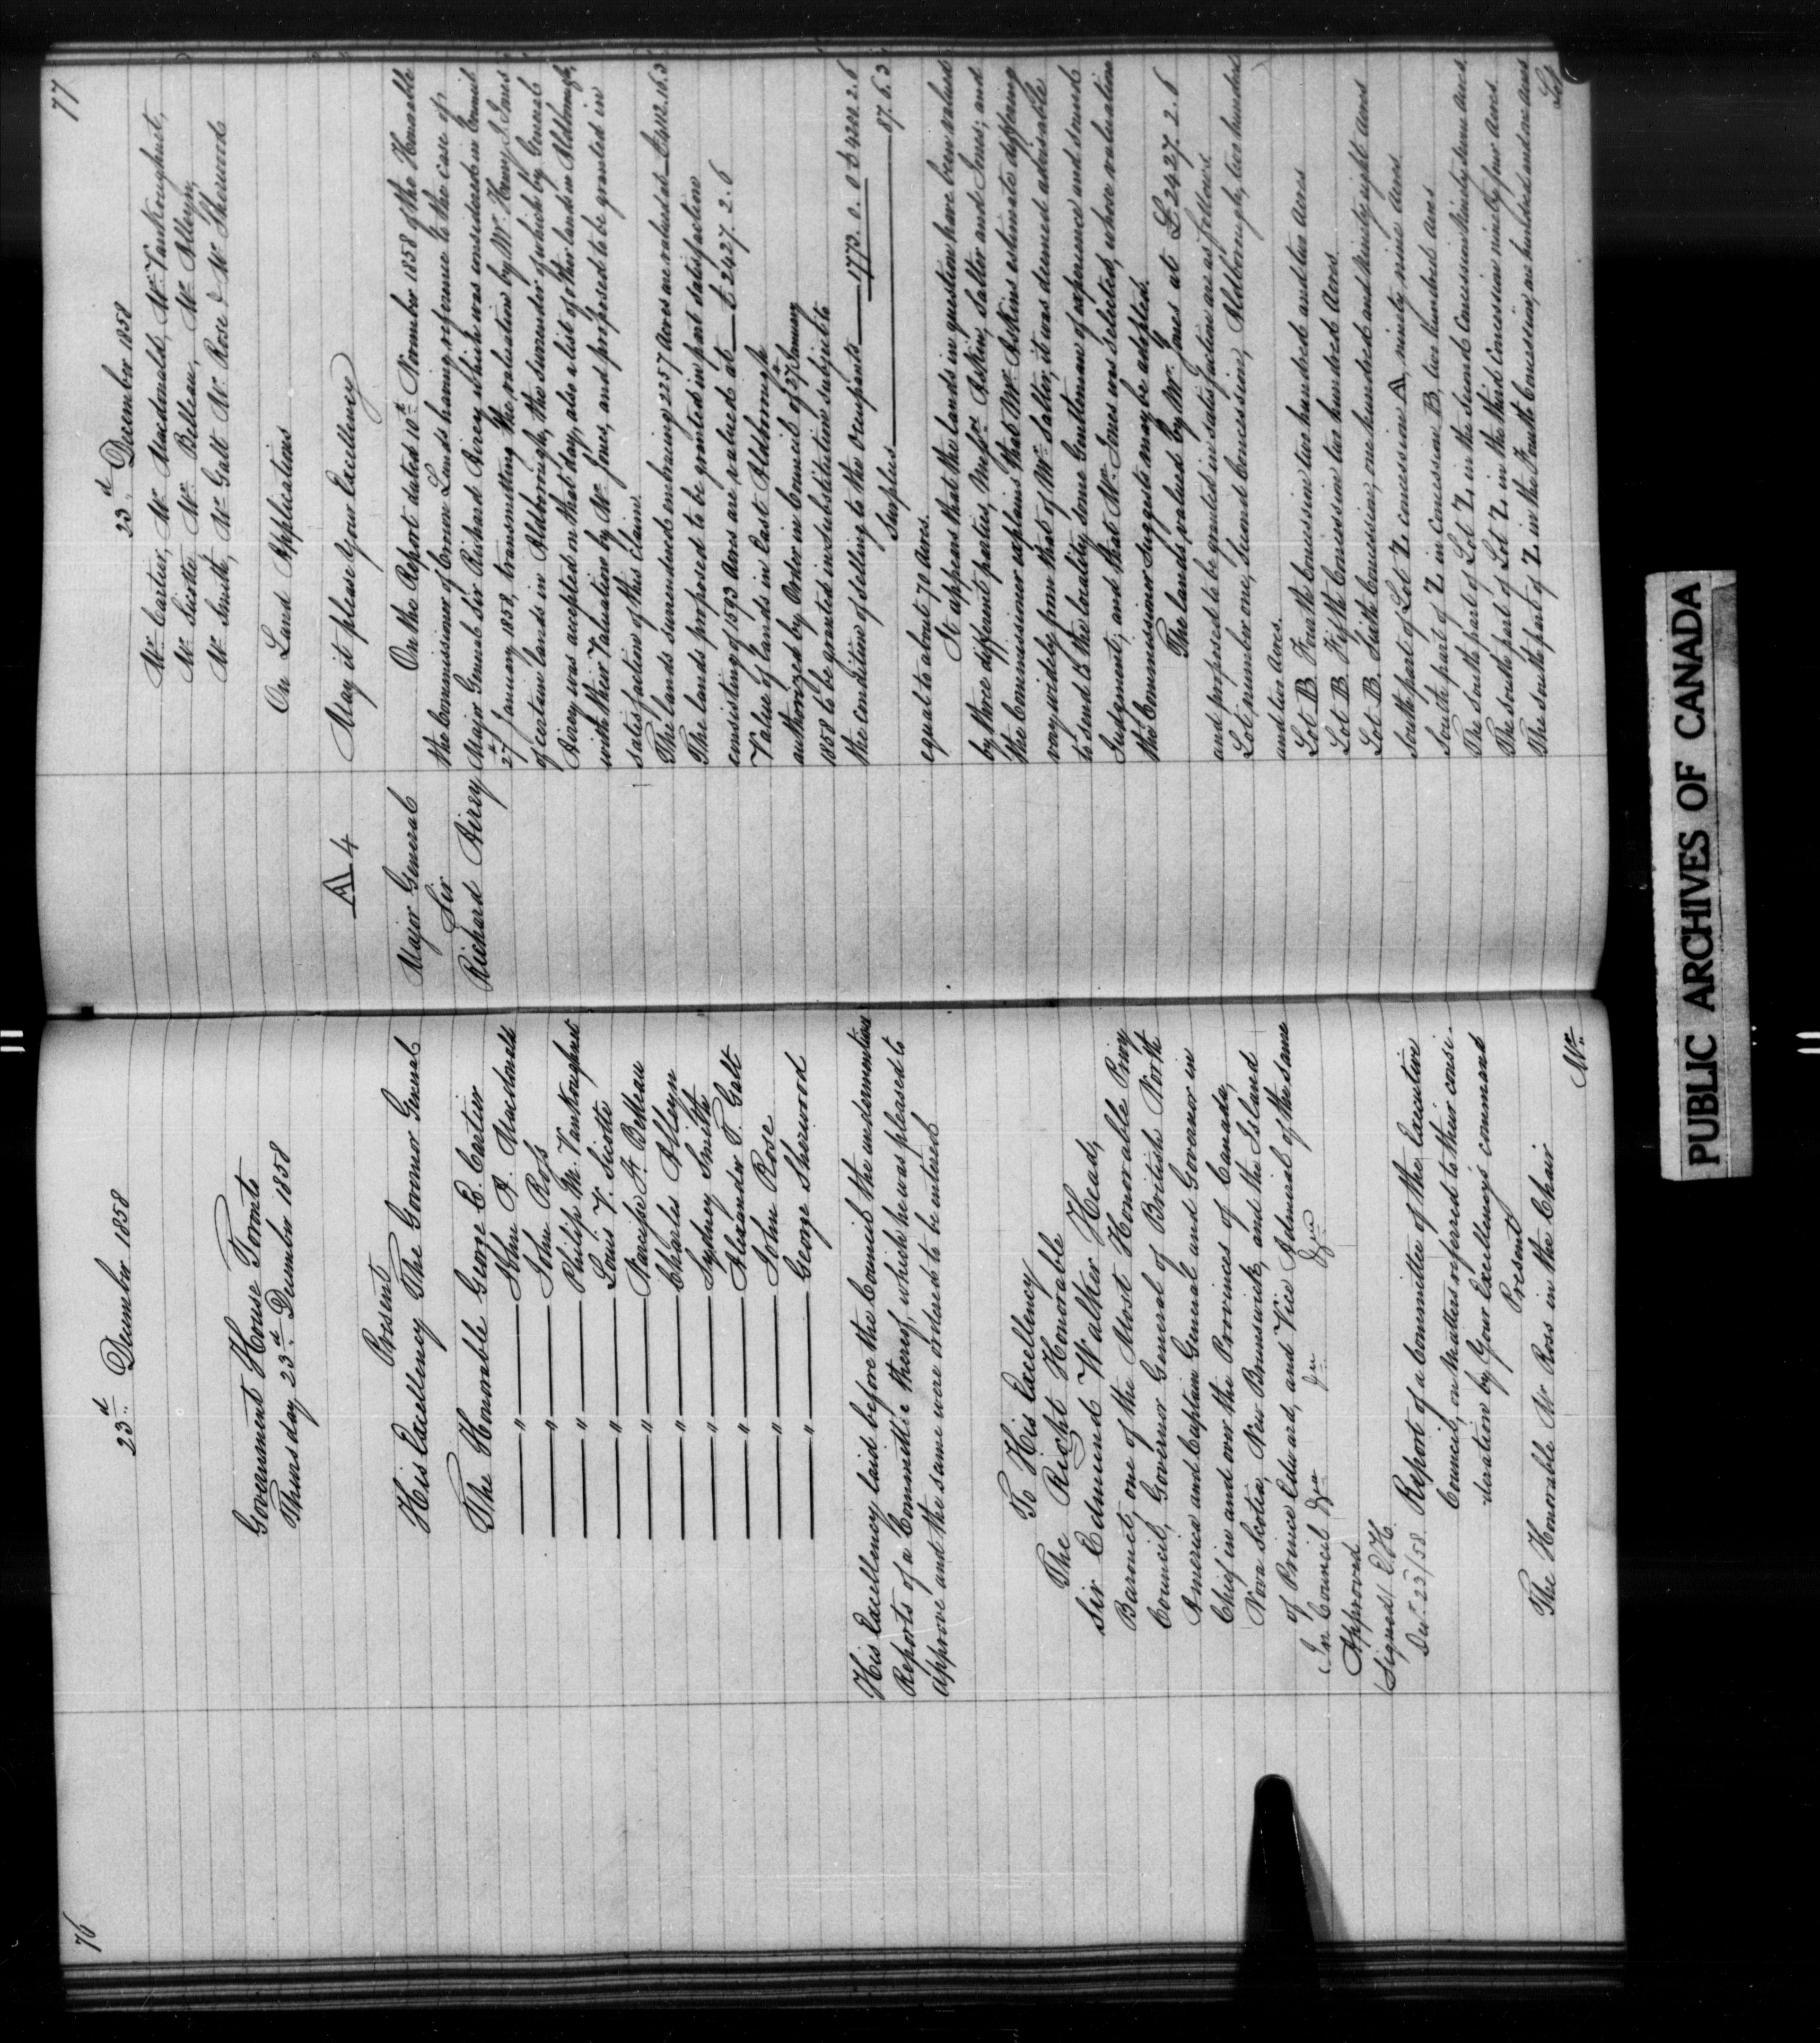 76
23d December 1858
Government House Toronto
Thursday 23d December 1858
Present
His Excellency The Governor General
The Honorable George E. Cartier
" John A. Macdonald
" John Ross
" Philip M. Vankoughnet
" Louis V. Sicotte
" Narcisse F. Belleau
" Charles Alleyn
" Sydney Smith
" Alexander T. Galt
" John Rose
" George Sherwood
His Excellency laid before the Council the undermentioned
Reports of a Committee thereof, which he was pleased to
approve and the same were ordered to be entered
To His Excellency
The Right Honorable
Sir Edmund Walker Head,
Baronet, one of the Most Honorable Privy
Council, Governor General of British North
America and Captain General and Governor in
Chief in and over the Provinces of Canada,
Nova Scotia, New Brunswick, and the Island
of Prince Edward, and Vice Admiral of the same
In Council
Approved
(Signed) E.H.
Decr 23/58
Report of a Committee of the Executive
Council, on Matters referred to their consi-
deration by Your Excellency's command
Present
The Honorable Mr Ross in the Chair
Mr
77
23d December 1858
Mr Cartier, Mr Macdonald, Mr Vankoughnet,
Mr Sicotte Mr Belleau, Mr Alleyn,
Mr Smith, Mr Galt Mr Rose & Mr Sherwood
On Land Applications
May it please Your Excellency
A 4
Major General
Sir
Richard Airey
On the Report dated 10th November 1858 of the Honorable
the Commissioner of Crown Lands having reference to the case of
Major General Sir Richard Airey which was considered in Council
27th January 1858, transmitting the valuation by Mr Henry J. Jones
of certain lands in Aldborough, the surrender of which by General
Airey was accepted on that day, also a list of other lands in Aldborough,
with their Valuation by Mr Jones, and proposed to be granted in
satisfaction of this claim.
The lands surrendered embracing 2257 Acres are valued at £4112.16.3
The lands proposed to be granted in part satisfaction
consisting of 1593 Acres are valued at £2427.2.6
Value of lands in East Aldborough
authorized by Order in Council of 27th January
1858 to be granted in substitution subject to
the condition of selling to the Occupants 1773.0.0 £4200.2.6
Surplus 87.6.3
equal to about 70 Acres.
It appears that the lands in question have been valued
by three different parties, Messrs Askin, Salter and Jones; and
the Commissioner explains that Mr Askins estimate differing
very widely from that of Mr Salter, it was deemed advisable
to send to the locality some Gentleman of experience and sound
Judgment, and that Mr Jones was selected, whose valuation
the Commissioner suggests may be adopted.
The lands valued by Mr Jones at £2427.2.6
and proposed to be granted in satisfaction are as follows
Lot number one, Second Concession, Aldborough, two hundred
and two Acres.
Lot B. Fourth Concession two hundred and two Acres
Lot B. Fifth Concession two hundred Acres
Lot B. Sixth Concession, one hundred and ninety eight Acres
South part of Lot 7, concession A, ninety nine Acres
South part of 7, in concession B, two hundred Acres
The South part of Lot 7, in the second Concession Ninety seven Acres
The South part of Lot 7, in the third Concession ninety four Acres
The South part of 7, in the Fourth Concession, one hundred and one Acres
Lot
PUBLIC ARCHIVES OF CANADA